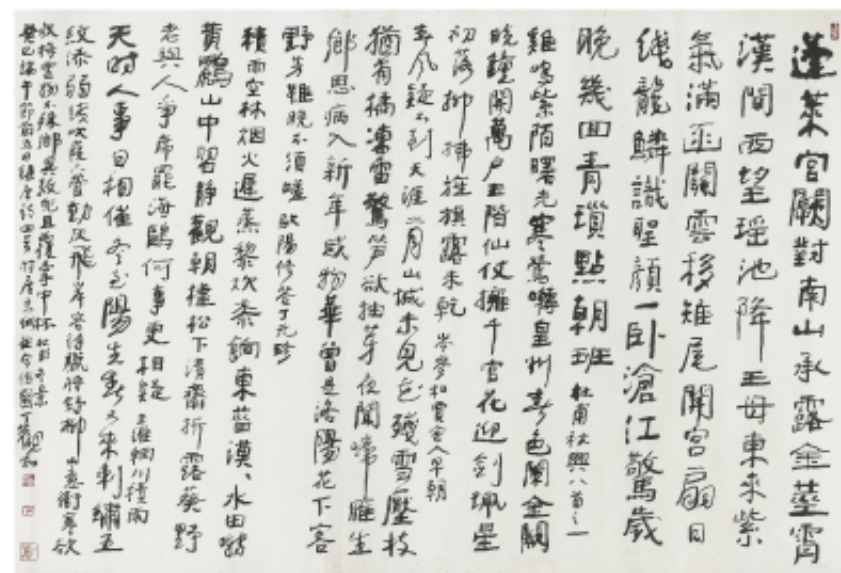 蓬萊宮闕對南山承露金莖霄
漢間西望瑶池降王母東來紫
氣滿函關雲移雉尾開宮扇日
繞龍鱗識聖顏一卧滄江驚歲
晚幾回青瑣點朝班 杜甫秋興八首之一
雞鳴紫陌曙光寒鶯囀皇州春色闌金闕
曉鐘開萬户玉階仙仗擁千官花迎劍珮星
初落柳拂旌旗露未乾 岑參和賈舍人早朝
春風疑不到天涯二月山城未見花殘雪壓枝
猶有橘凍雷驚笋欲抽芽夜聞啼雁生
鄉思病入新年感物華曾是洛陽花下客
野芳雖晚不須嗟 歐陽修答丁元珍
積雨空林烟火遲蒸藜炊黍餉東菑漠、水田囀
黄鸝山中習静觀朝槿松下清齋折露葵野
老與人爭席罷海鷗何事更相疑 王維輞川積雨
天時人事日相催冬至陽生春又來刺繡五
紋添弱線吹葭六管動灰飛岸容待臘將舒柳山意衝寒欲
放梅雲物不殊鄉異教兒且覆掌中杯 杜甫冬景
癸巳端午節前五日